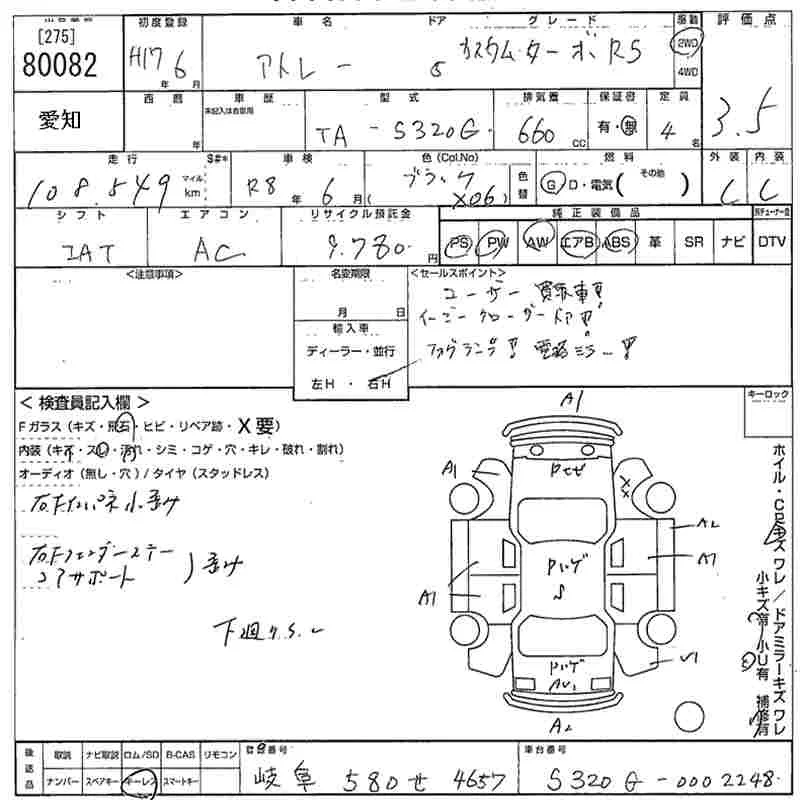 [275]
80082
初度登録
H17年6月
車名
アトレー
ドア
5
グレード
カスタムターボRS
駆動
2WD
4WD
評価点
3.5
愛知
西暦
年
車歴
未記入は自家用
型式
TA-S320G
排気量
660cc
保証書
有・無
定員
4名
走行
108.849
マイル
km
S#*
車検
R8年6月
色(Col.No)
ブラック
(X06)
色替
燃料
G D・電気( その他 )
外装
C
内装
C
シフト
IAT
エアコン
AC
リサイクル預託金
9.780円
純正装備品
PS PW AW エアB ABS 革 SR ナビ DTV
<注意事項>
名変期限
月 日
輸入車
ディーラー・並行
左H・右H
<セールスポイント>
ユーザー買取車
イージークローザードア
フォグランプ 電格ミラー
キーロック
<検査員記入欄>
Fガラス(キズ・飛石・ヒビ・リペア跡・X要)
内装(キズ・スレ・汚れ・シミ・コゲ・穴・キレ・破れ・割れ)
オーディオ(無し・穴)/タイヤ(スタッドレス)
小歪み
右Fフェンダーステー
コアサポート
)歪み
下廻り.S.
A1
A1
XX
A2
A1
Pハゲ
S
A1
Pハゲ
AU1
U1
A2
後送品
取説 ナビ取説 ロム/SD B-CAS リモコン
ナンバー スペアキー キーレス スマートキー
登録番号
岐阜 580 せ 4657
車台番号
S320G-0002248